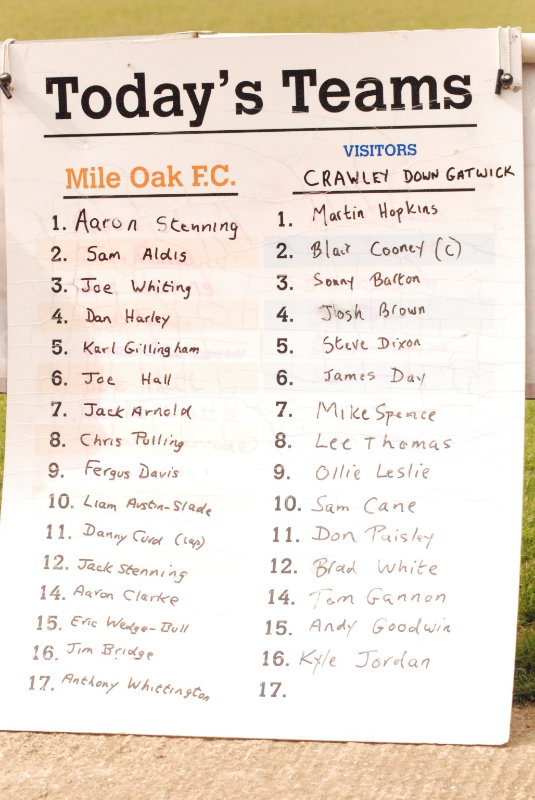 Today's Teams
Mile Oak F.C.
1. Aaron Stenning
2. Sam Aldis
3. Joe Whiting
4. Dan Harley
5. Karl Gillingham
6. Joe Hall
7. Jack Arnold
8. Chris Pulling
9. Fergus Davis
10. Liam Austin-Slade
11. Danny Curd (cap)
12. Jack Stenning
14. Aaron Clarke
15. Eric Wedge-Bull
16. Jim Bridge
17. Anthony Whittington
VISITORS
CRAWLEY DOWN GATWICK
1. Martin Hopkins
2. Blair Cooney (C)
3. Sonny Barton
4. Josh Brown
5. Steve Dixon
6. James Day
7. Mike Spence
8. Lee Thomas
9. Ollie Leslie
10. Sam Cane
11. Don Paisley
12. Brad White
14. Tom Gannon
15. Andy Goodwin
16. Kyle Jordan
17.